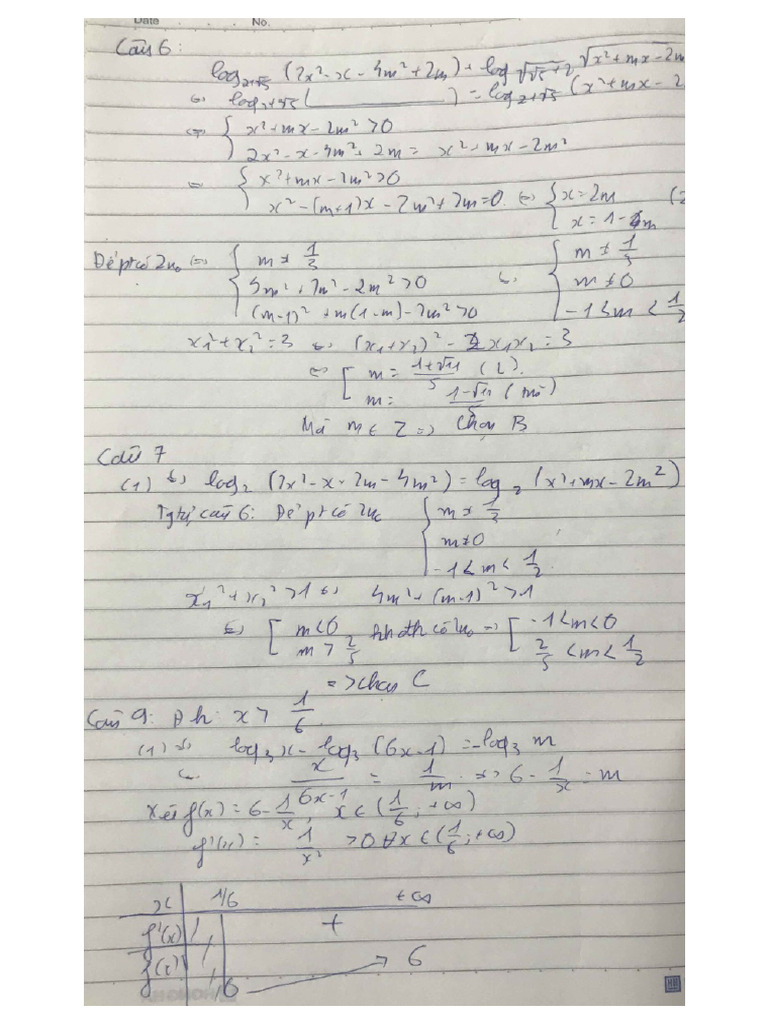 Date No.
Câu 6:
log_{2+√5} (2x² - x - 4m² + 2m) + log_{√(√5+2)} √(x² + mx - 2m
⇔ log_{2+√5} ( ______ ) = log_{2+√5} (x² + mx - 2
⇔ { x² + mx - 2m² > 0
2x² - x - 4m² + 2m = x² + mx - 2m²
= { x² + mx - 2m² > 0
x² - (m+1)x - 2m² + 2m = 0 ⇔ { x = 2m
x = 1 - m
Để pt có 2n₀ ⇔ { m ≠ 1/3
4m² + 2m² - 2m² > 0
(m-1)² + m(1-m) - 2m² > 0
{ m ≠ 1/3
m ≠ 0
-1 < m < 1/2
x₁² + x₂² = 3 ⇔ (x₁ + x₂)² - 2x₁x₂ = 3
⇔ [ m = (1+√11)/5 (L).
m = (1-√11)/5 (
Mà m ∈ Z => Chọn B
Câu 7
(1) ⇔ log₂ (2x² - x + 2m - 4m²) = log₂ (x² + mx - 2m²)
Tg tự câu 6: Để pt có 2n₀ { m ≠ 1/3
m ≠ 0
-1 < m < 1/2
x₁² + x₂² > 1 ⇔ 4m² + (m-1)² > 1
⇔ [ m < 0
m > 2/5
có 2n₀ => [ -1 < m < 0
2/5 < m < 1/2
=> chọn C
Câu 9: Đk: x > 1/6
(1) ⇔ log₃ x - log₃ (6x - 1) = -log₃ m
x/(6x-1) = 1/m ⇔ 6 - 1/x = m
Xét f(x) = 6 - 1/x, x ∈ (1/6; +∞)
f'(x) = 1/x² > 0 ∀x ∈ (1/6; +∞)
x 1/6 +∞
f'(x) +
f(x) 6